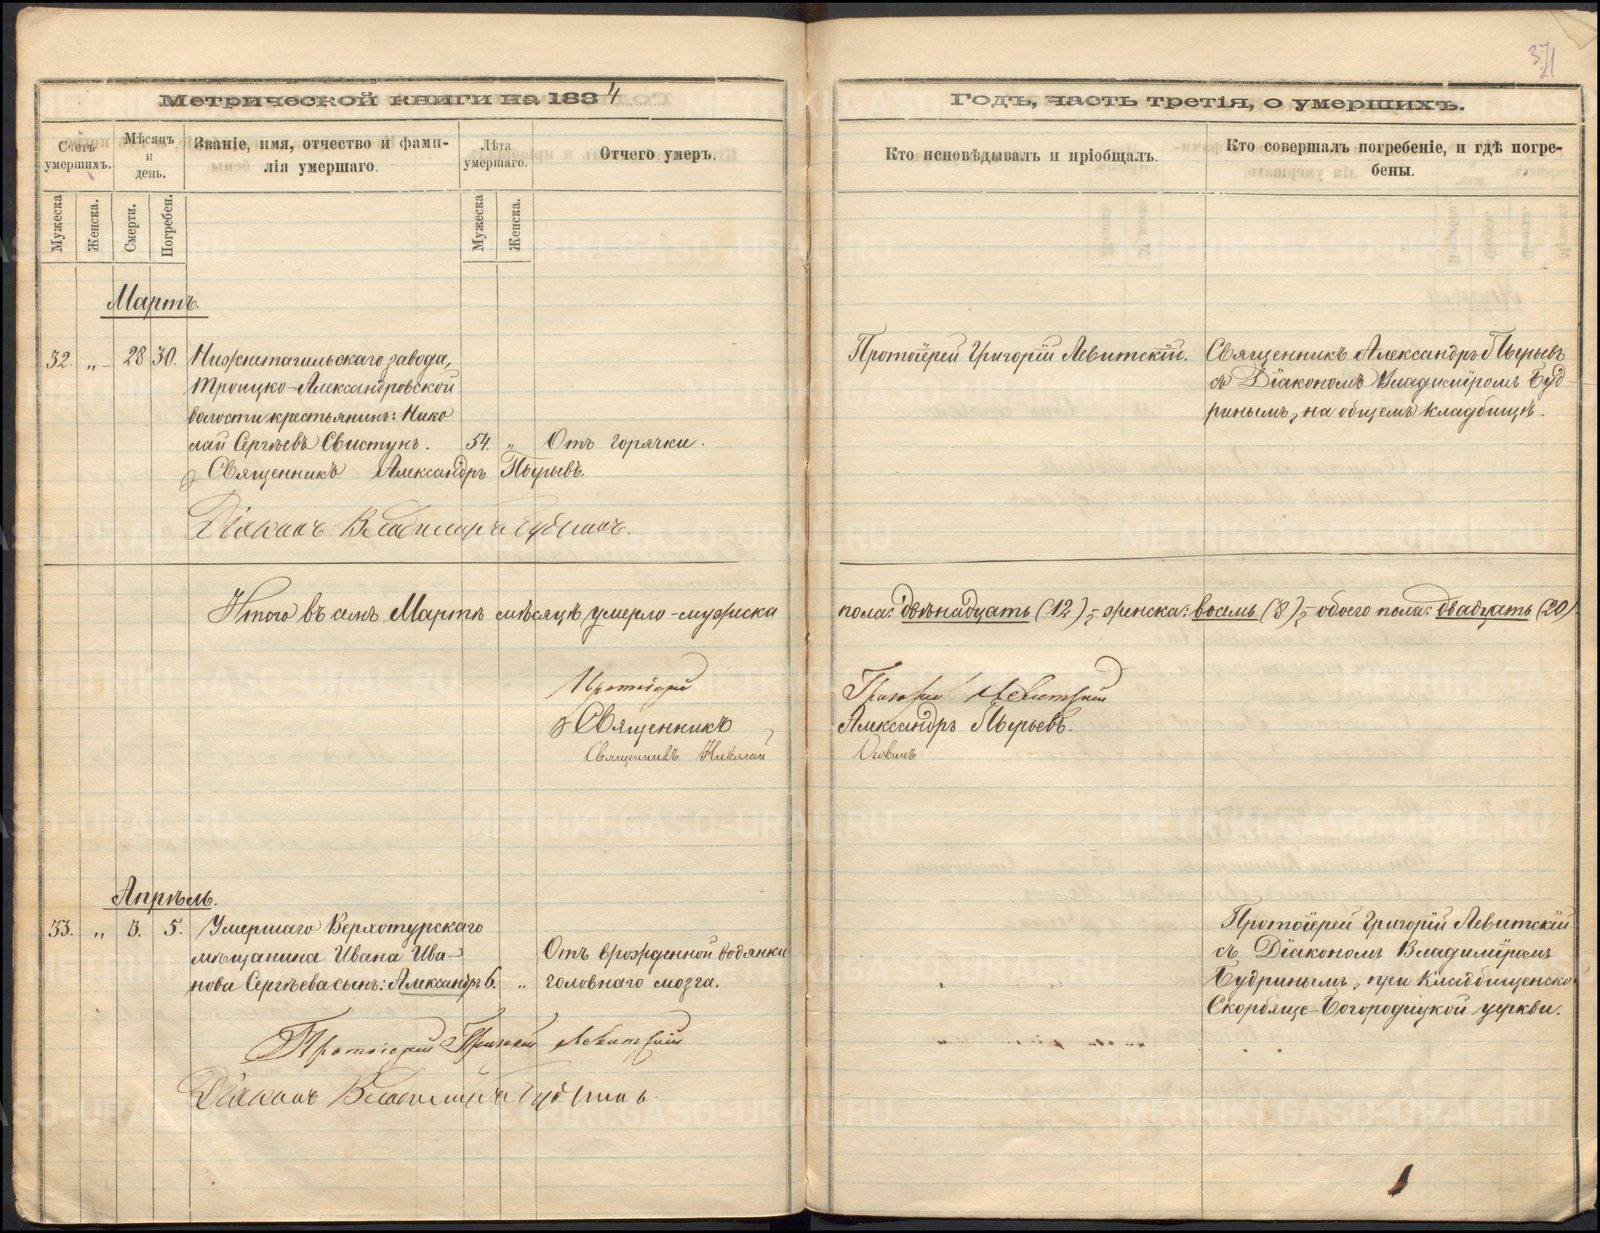 371
Метрической книги на 1884
Годъ, часть третія, о умершихъ.
Счетъ умершихъ.
Мѣсяцъ и день.
Званіе, имя, отчество и фами-
лія умершаго.
Лѣта умершаго.
Отчего умеръ.
Кто исповѣдывалъ и пріобщалъ.
Кто совершалъ погребеніе, и гдѣ погре-
бены.
Мужеска
Женска.
Смерти.
Погребен.
Мужеска
Женска.
Мартъ.
32. „ 28 30. Нижнетагильскаго завода,
Троицко-Александровской
волости крестьянинъ: Нико
лай Сергѣевъ Свистунъ. 54. „ Отъ горячки.
Протоіерей Григорій Левитскій.
Священникъ Александръ Пырьевъ
съ Діакономъ Владиміромъ Буд-
ринымъ, на общемъ кладбищѣ.
Священникъ Александръ Пырьевъ.
Діаконъ Владимиръ Будринъ.
Итого въ семъ Мартѣ мѣсяцѣ умерло - мужеска
пола: двѣнадцать (12), - женска: восемь (8), - обоего пола: двадцать (20)
Протоіерей Григорій Левитскій
Священникъ Александръ Пырьевъ.
Священникъ Николай
Апрѣль.
33. „ 3. 5. Умершаго Верхотурскаго
мѣщанина Ивана Ива-
нова Сергѣева сынъ: Александръ 6. „
Отъ врожденной водянки
головнаго мозга.
Протоіерей Григорій Левитскій
съ Діакономъ Владиміромъ
Будринымъ, при Кладбищенско
Скорбяще-Богородицкой церкви.
Протоіерей Григорій Левитскій
Діаконъ Владимиръ Будринъ.
METRIKI.GASO-URAL.RU